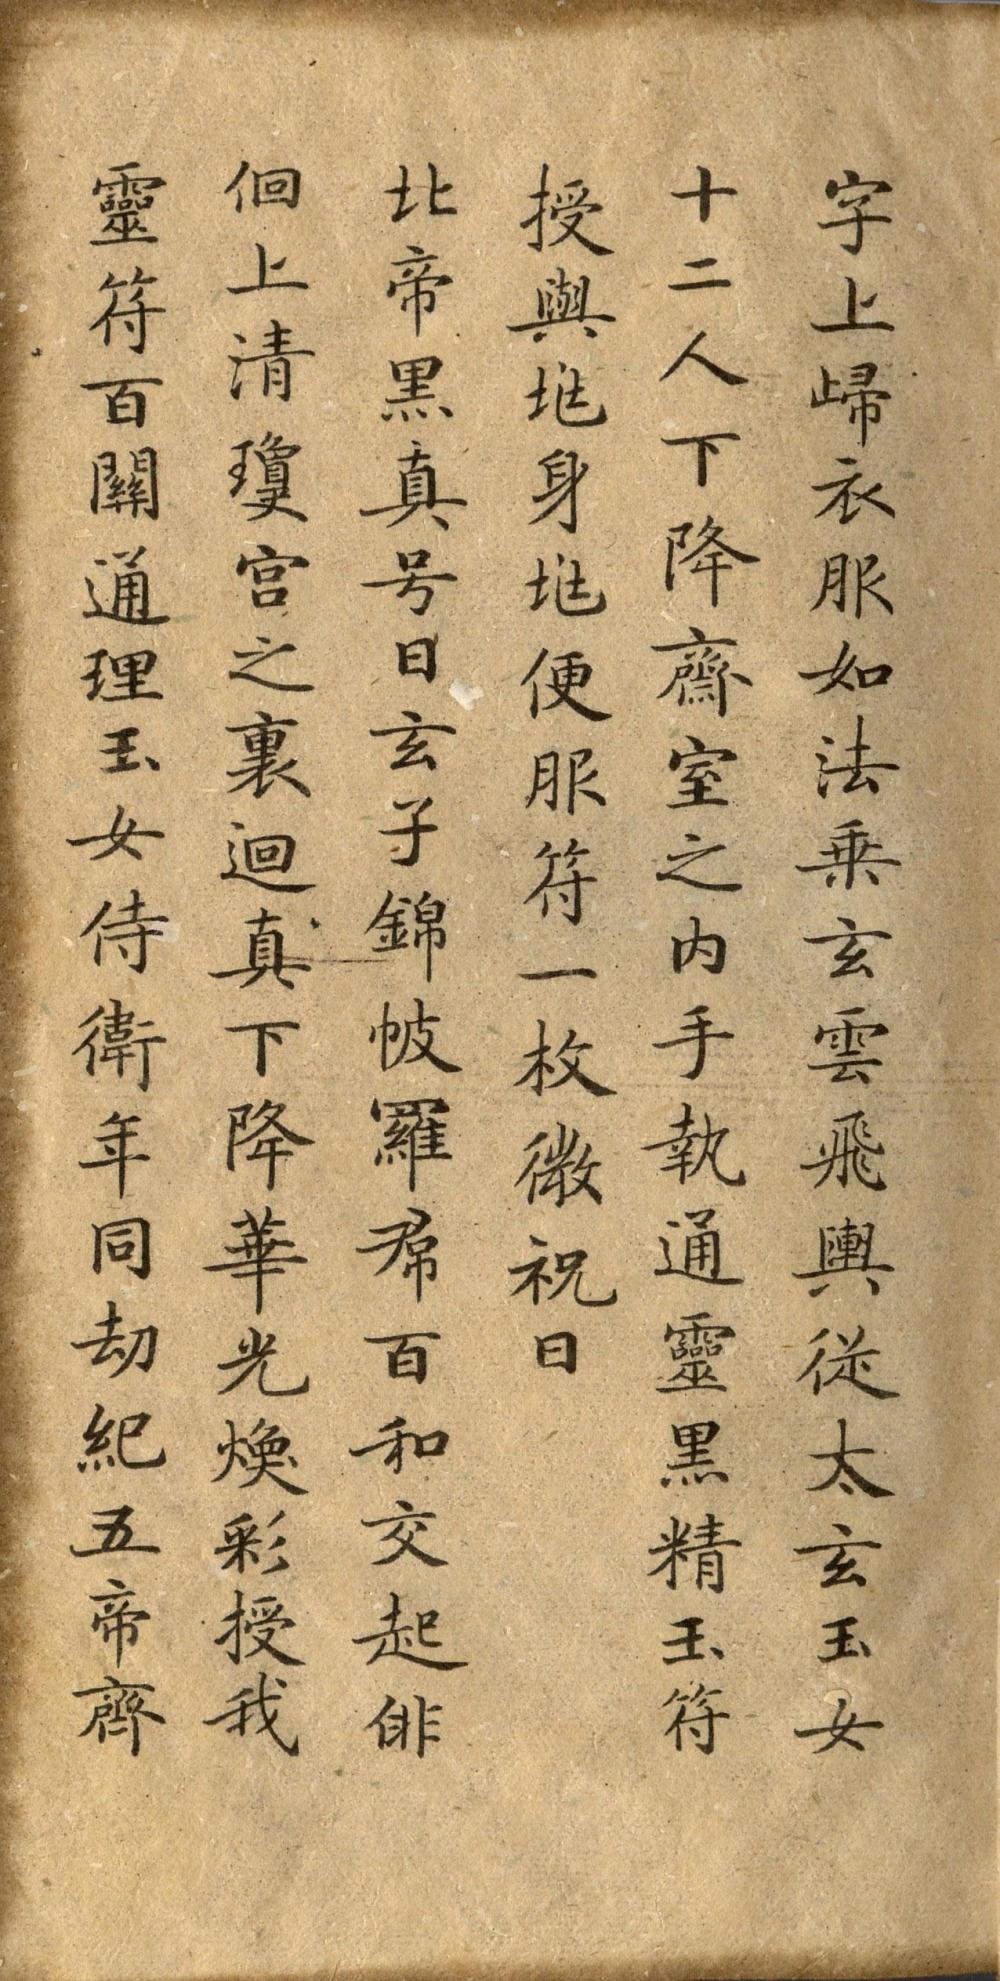 字上歸衣服如法乗玄雲飛輿従太玄玉女
十二人下降齋室之内手執通靈黑精玉符
授與兆身兆便服符一枚微祝曰
北帝黑真号曰玄子錦帔羅帬百和交起俳
佪上清瓊宫之裏迴真下降華光煥彩授我
靈符百關通理玉女侍衛年同劫紀五帝齊